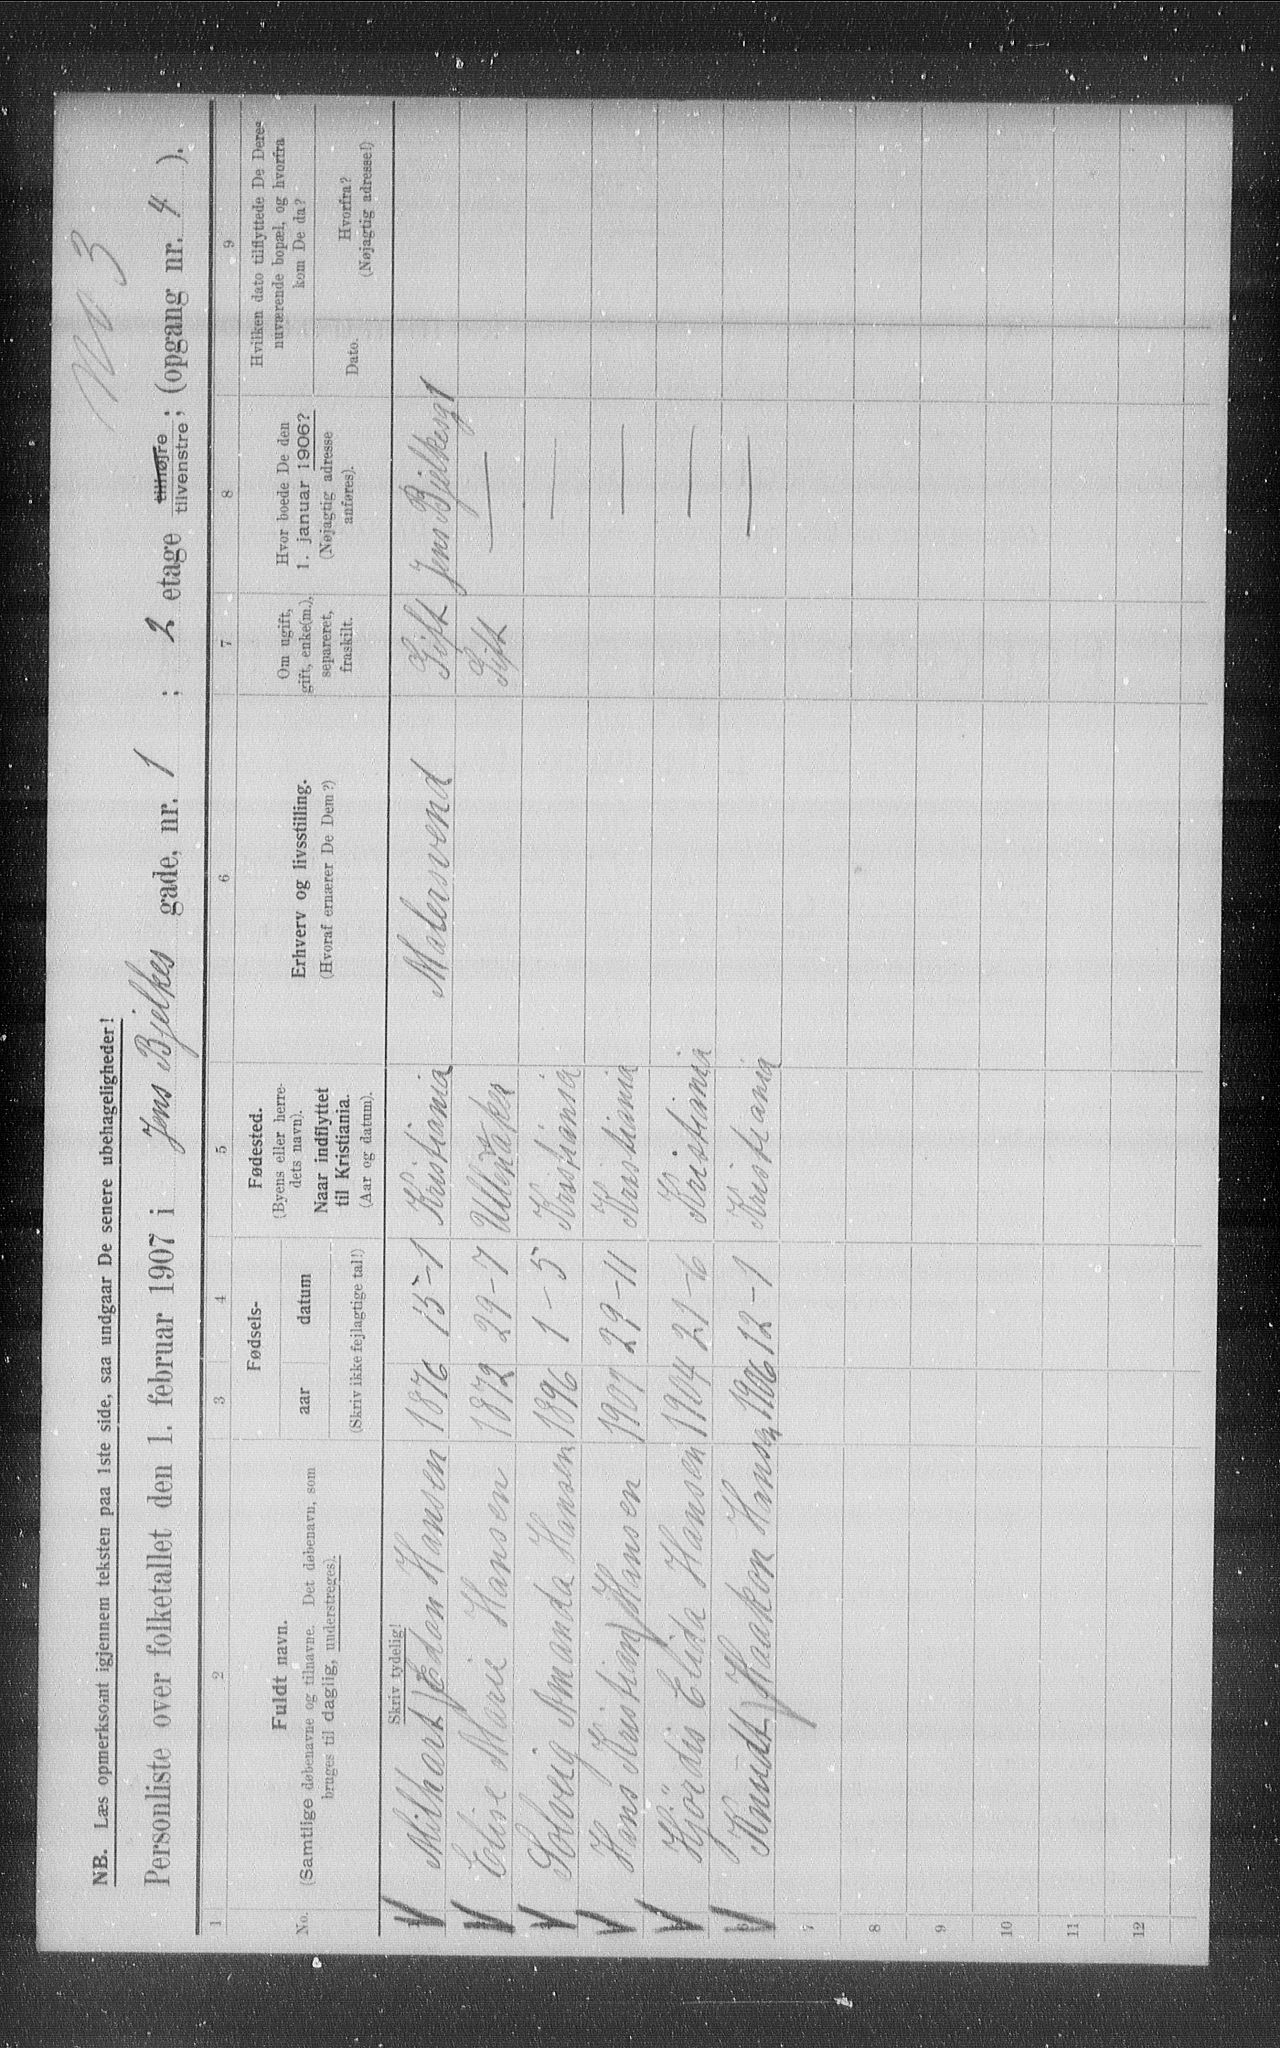 No 3
NB. Læs opmerksomt igjennem teksten paa 1ste side, saa undgaar De senere ubehageligheder!
Personliste over folketallet den 1. februar 1907 i Jens Bjelkes gade, nr. 1 ; 2 etage tilhøjre tilvenstre; (opgang nr. 4 ).
1 2 3 4 5 6 7 8 9
No. Fuldt navn. (Samtlige døbenavne og tilnavne. Det døbenavn, som bruges til daglig, understreges).
Fødsels- aar datum (Skriv ikke fejlagtige tal!)
Fødested. (Byens eller herredets navn). Naar indflyttet til Kristiania. (Aar og datum).
Erhverv og livsstilling. (Hvoraf ernærer De Dem?)
Om ugift, gift, enke(m.), separeret, fraskilt.
Hvor boede De den 1. januar 1906? (Nøjagtig adresse anføres).
Hvilken dato tilflyttede De Deres nuværende bopæl, og hvorfra kom De da?
Dato. Hvorfra? (Nøjagtig adresse!)
Skriv tydelig!
Milhart Edon Hansen 1876 15-1 Kristiania Malersvend Gift Jens Bjelkesgt 1
Elise Marie Hansen 1872 29-7 Ullensaker Gift —
Solveig Amanda Hansen 1896 1-5 Kristiania —
Hans Kristian Hansen 1901 29-11 Kristiania —
Hjördis Elida Hansen 1904 21-6 Kristiania —
Knudt Haakon Hansen 1906 12-1 Kristiania —
7
8
9
10
11
12